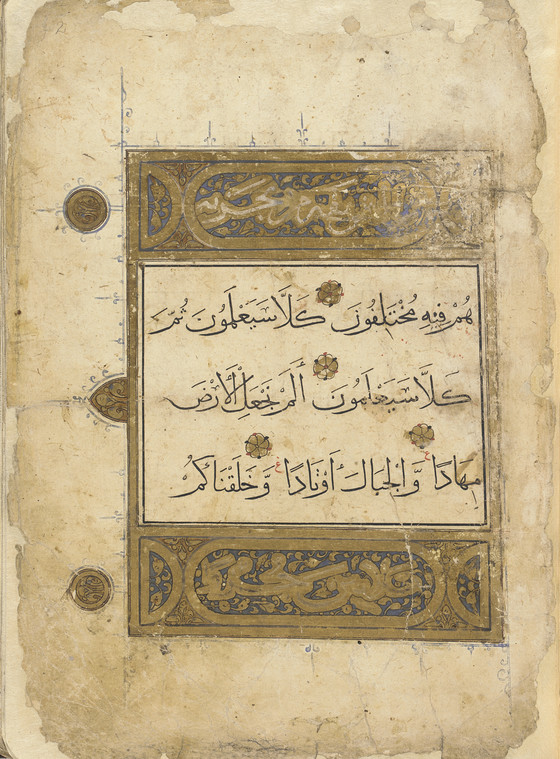 هُمْ فِيهِ مُخْتَلِفُونَ كَلَّا سَيَعْلَمُونَ ثُمَّ
كَلَّا سَيَعْلَمُونَ أَلَمْ نَجْعَلِ الْأَرْضَ
مِهَادًا وَّالْجِبَالَ أَوْتَادًا وَّخَلَقْنَاكُمْ